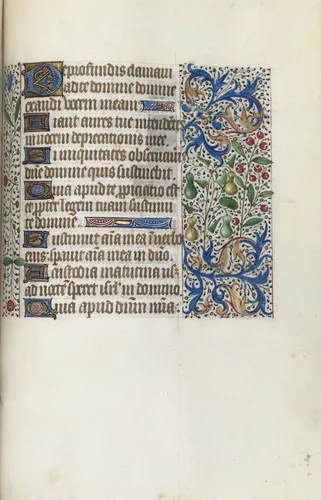 De profundis clamaui
ad te domine domine
exaudi vocem meam
Fiant aures tue intendentes
in vocem deprecationis mee.
Si iniquitates obseruaueris
dñe domine quis sustinebit.
Quia apud te propiciatio est
et propter legem tuam sustinui
te domine
Sustinuit aĩa mea in verbo
eius sperauit aĩa mea in dño.
A custodia matutina usq3
ad noctem speret isrl in domino
Quia apud dñm mĩa